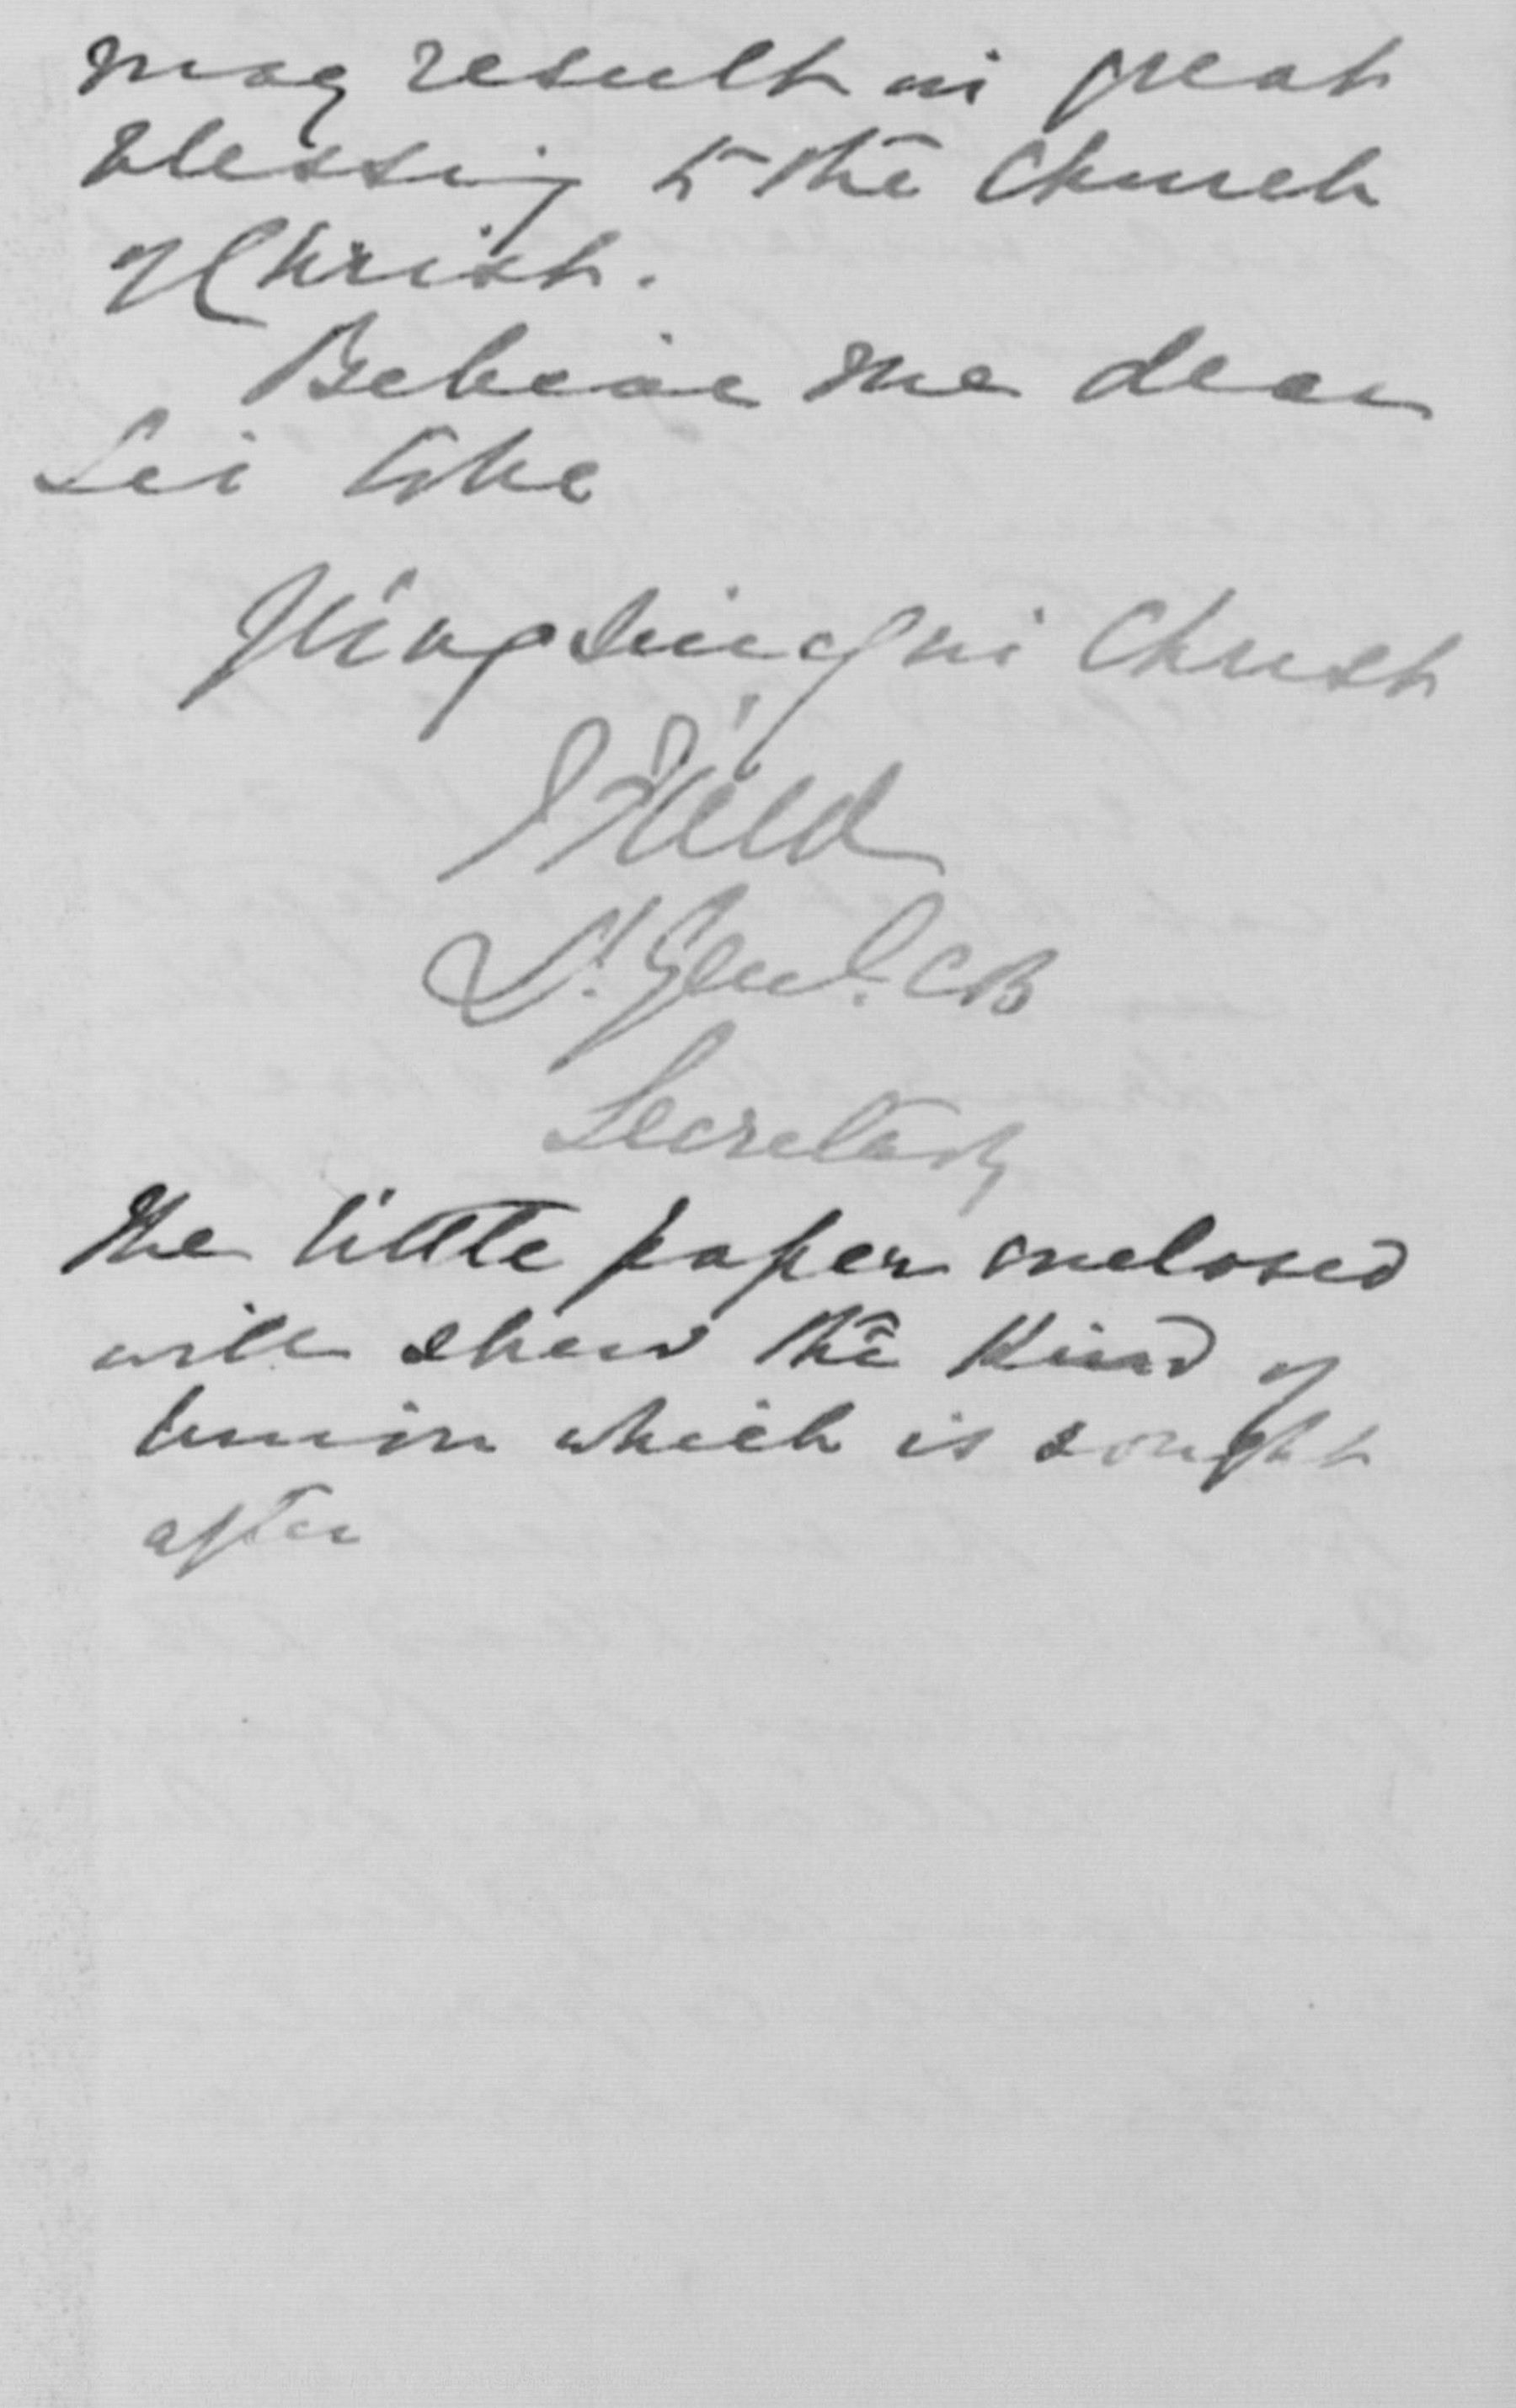 may result in great
blessing to the Church
of Christ.
Believe me dear
Sir to be
Yours sincerely in Christ
J Field
Lt. Genl. CB
Secretary
The little paper enclosed
will shew the Kind of
Union which is sought
after